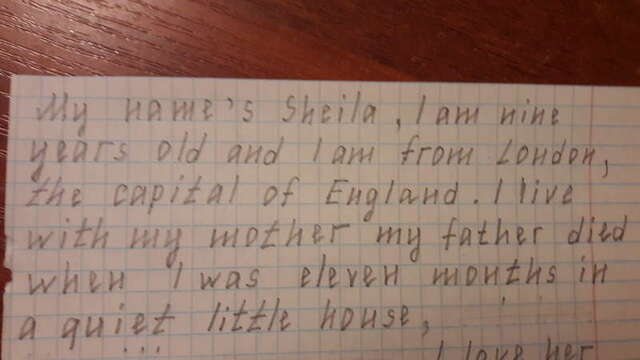 My name's Sheila, I am nine
years old and I am from London,
the capital of England. I live
with my mother my father died
when I was eleven months in
a quiet little house,
I love her